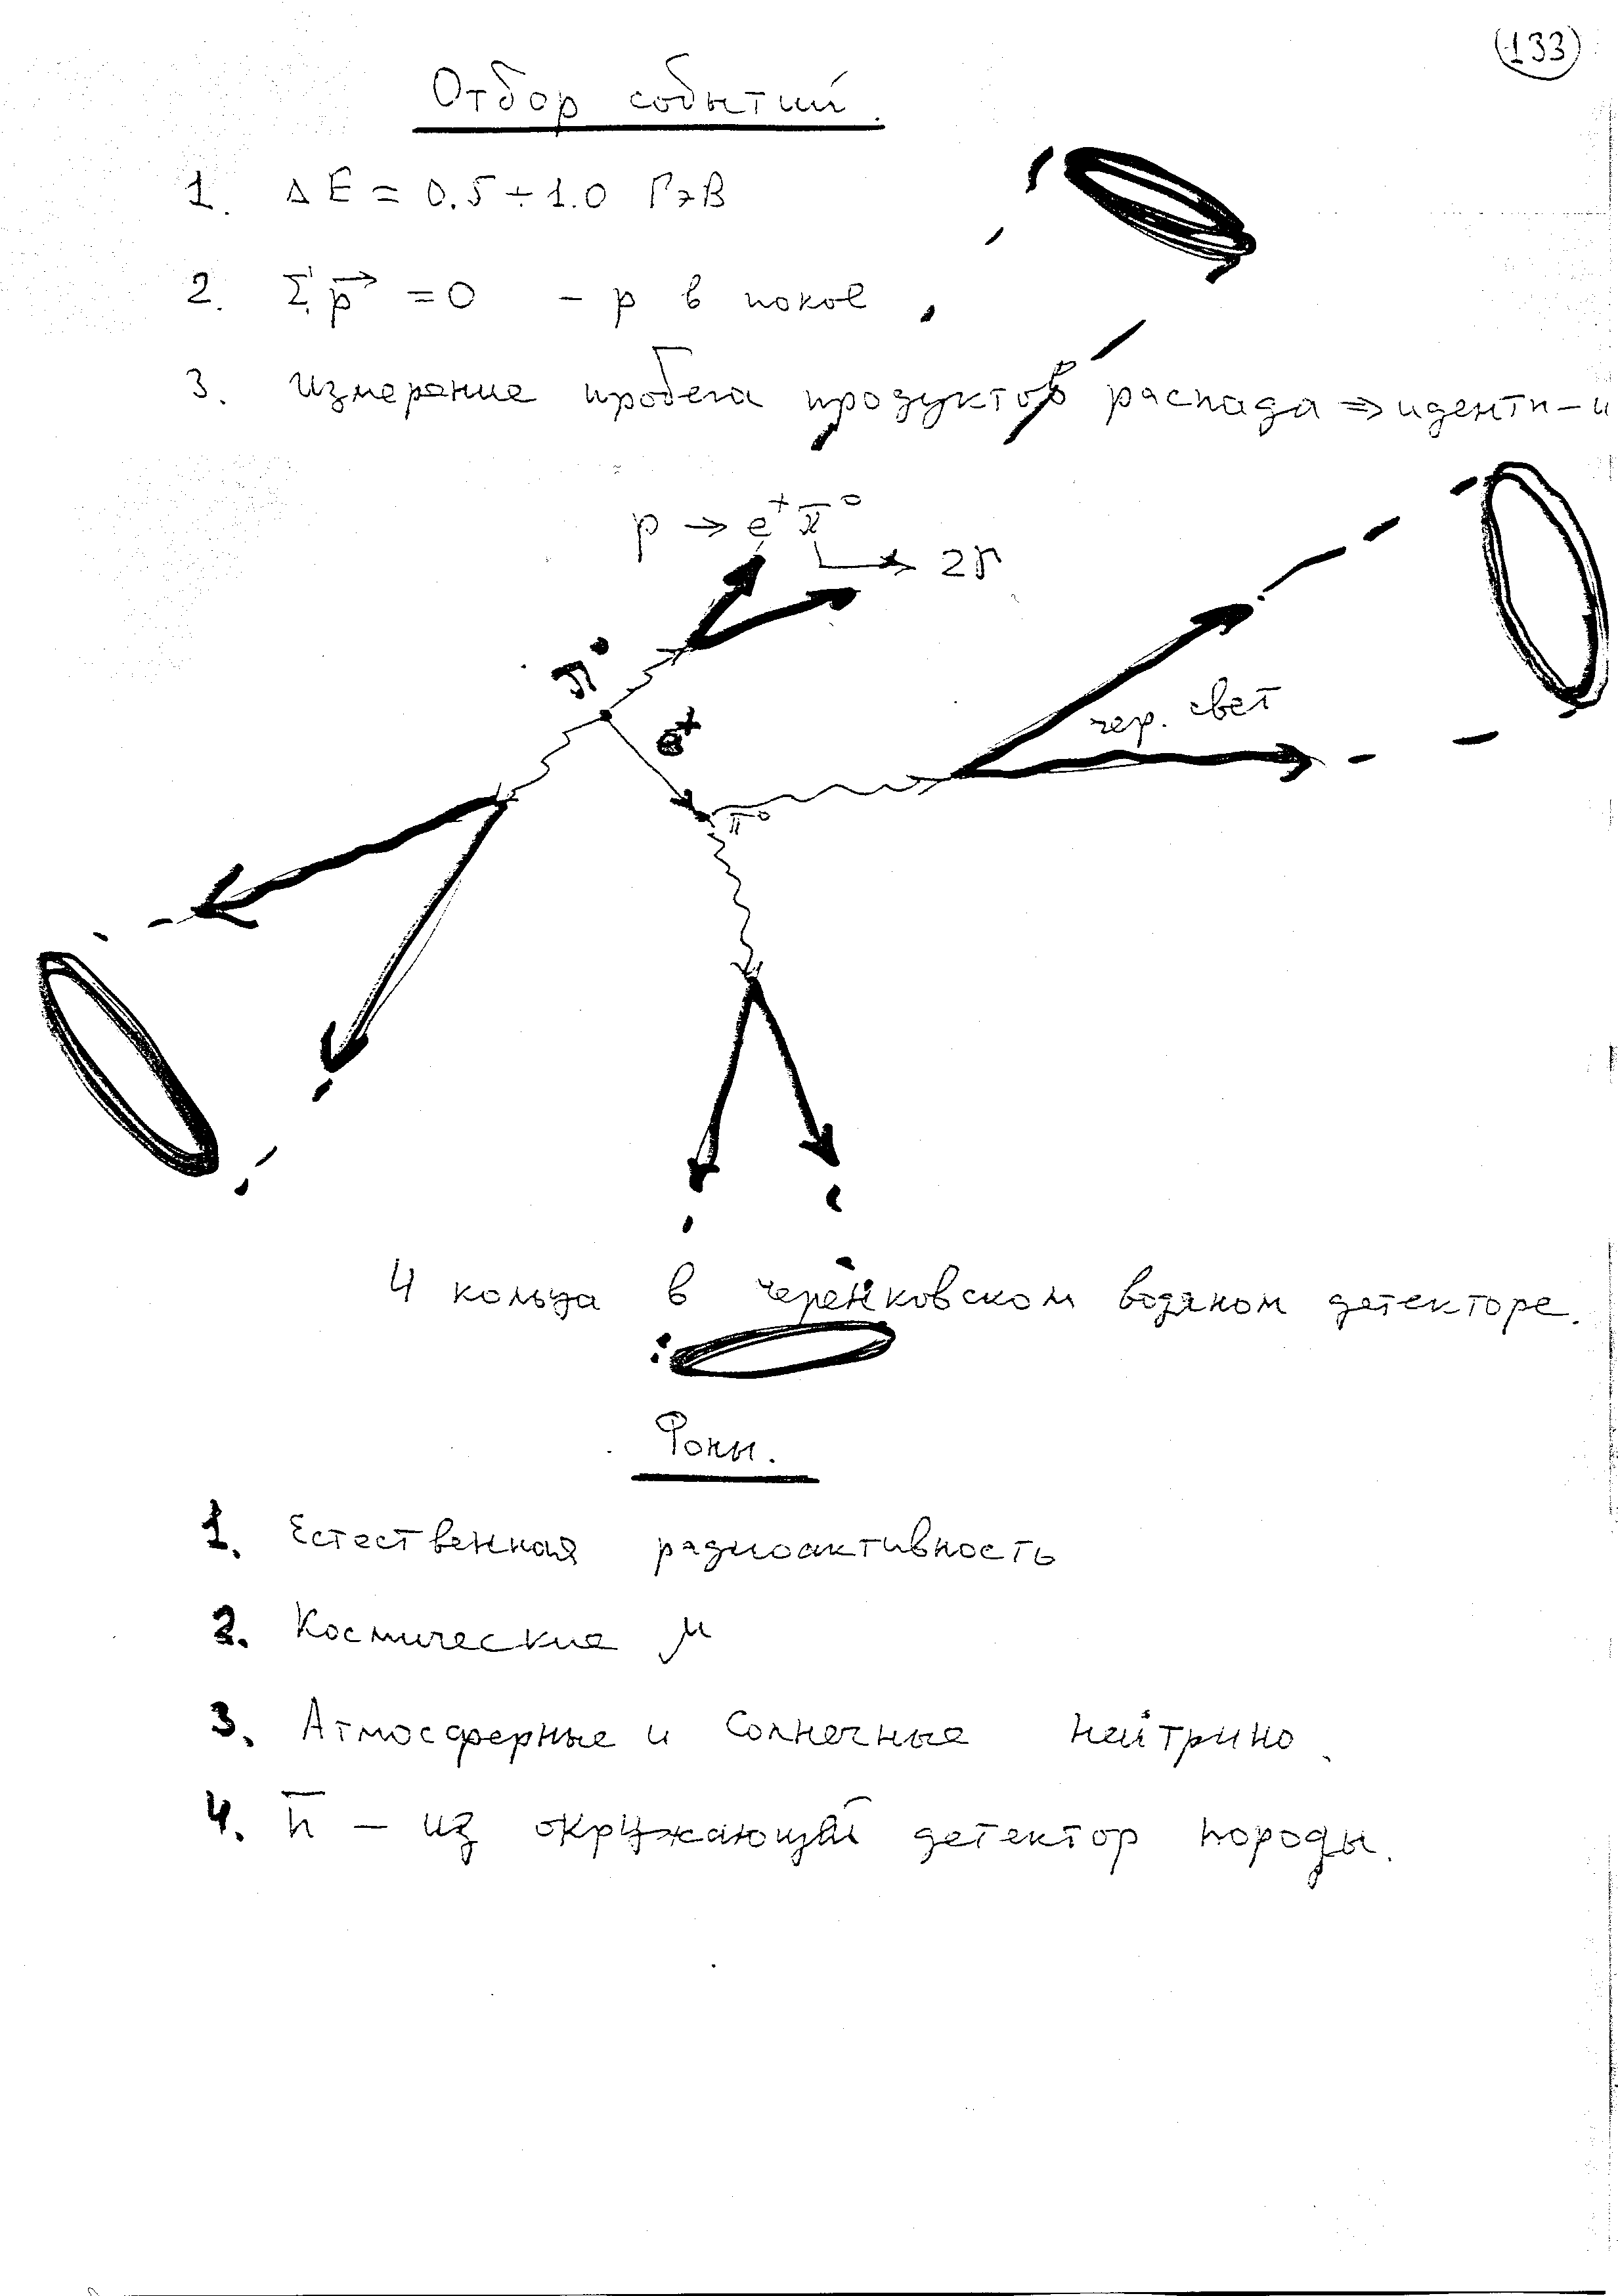 133
Отбор событий.
1. ΔE = 0.5 ÷ 1.0 ГэВ
2. Σp⃗ = 0 – p в покое
3. измерение пробега продуктов распада ⇒ иденти-и
p → e⁺ π⁰
→ 2γ
π⁰
e⁺
чер. свет
π⁰
4 кольца в черенковском водяном детекторе.
Фоны.
1. Естественная радиоактивность
2. Космические μ
3. Атмосферные и Солнечные нейтрино.
4. n̅ – из окружающей детектор породы.